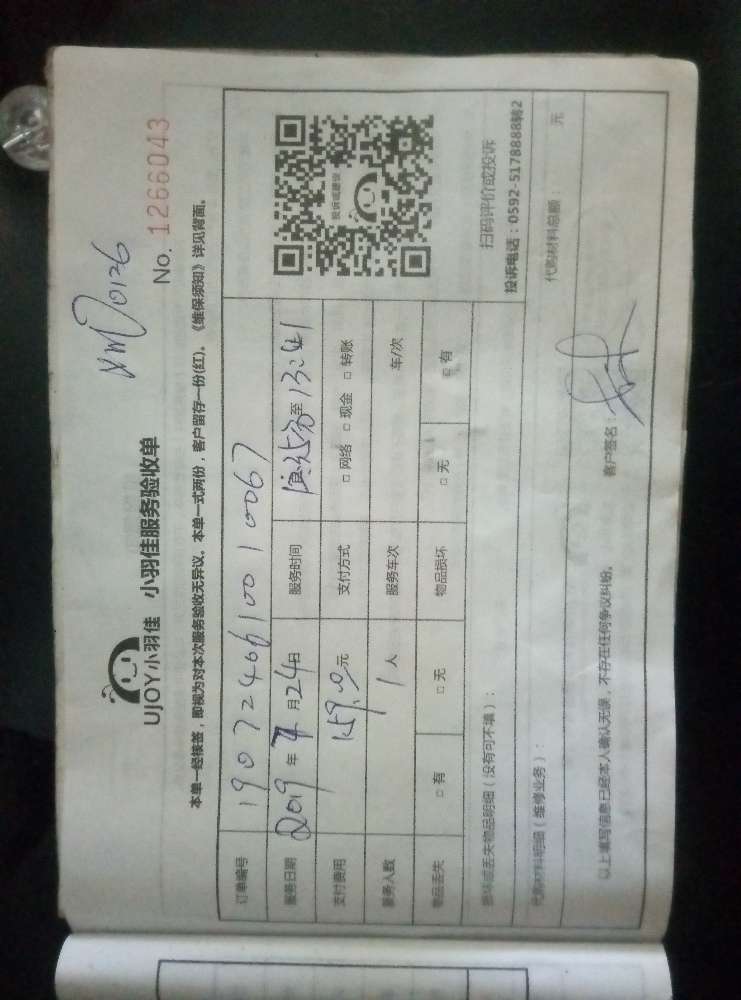 UJOY小羽佳 小羽佳服务验收单
XM 0126
No. 1266043
本单一经接签，即视为对本次服务验收无异议。本单一式两份，客户留存一份(红)。《维保须知》详见背面。
订单编号 190724061001 0067
服务日期 2019 年 7 月 24 日 服务时间 至 13:41
支付费用 159.0 元 支付方式 □ 网络 □ 现金 □ 转账
服务人数 1 人 服务车次 车/次
物品丢失 □ 有 □ 无 物品损坏 □ 无 □ 有
投诉或建议
扫码评价或投诉
投诉电话：0592-5178888转2
损坏或丢失物品明细（没有可不填）：
代购材料明细（维修业务）： 代购材料总额： 元
以上填写信息已经本人确认无误，不存在任何争议纠纷。 客户签名：